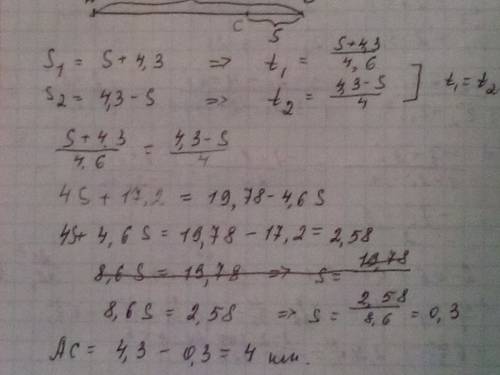 C
S
S₁ = S + 4,3 => t₁ = (S+4,3)/4,6
S₂ = 4,3 - S => t₂ = (4,3-S)/4 ] t₁ = t₂
(S+4,3)/4,6 = (4,3-S)/4
4S + 17,2 = 19,78 - 4,6S
4S + 4,6S = 19,78 - 17,2 = 2,58
8,6S = 19,78 => S = 19,78
8,6S = 2,58 => S = 2,58/8,6 = 0,3
AC = 4,3 - 0,3 = 4 км.